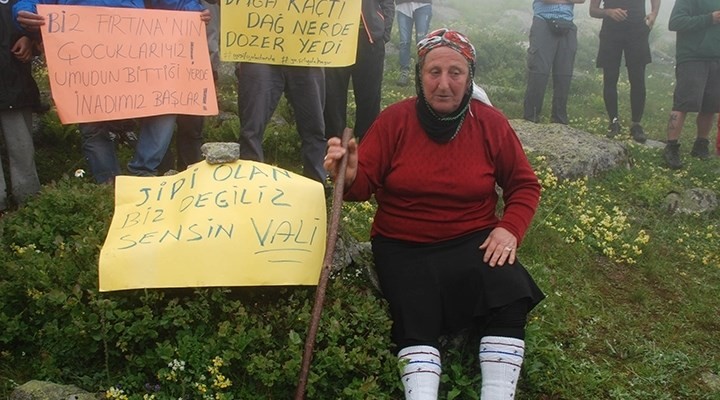 BİZ FIRTINA'NIN
ÇOCUKLARIYIZ!
UMUDUN BİTTİĞİ YERDE
İNADIMIZ BAŞLAR!
KAÇTI
DAĞ NERDE
DOZER YEDİ
JİPİ OLAN
BİZ DEĞİLİZ
SENSİN VALİ